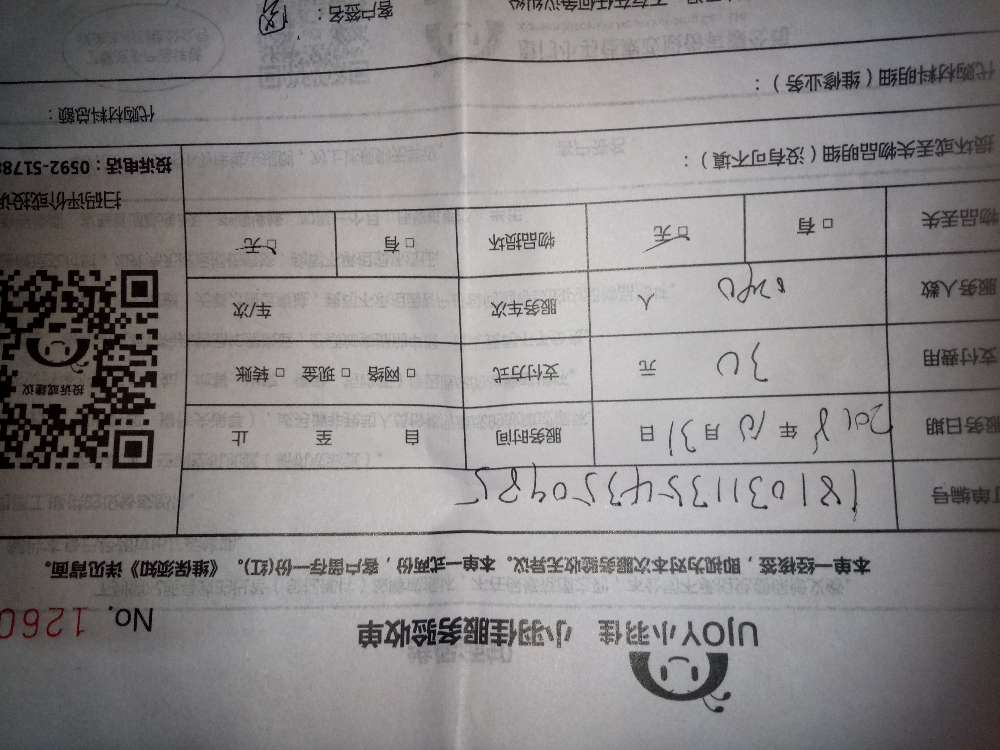 UJOY小羽佳 小羽佳服务验收单
No. 1260
本单一经接签，即视为对本次服务验收无异议。本单一式两份，客户留存一份(红)。《维保须知》详见背面。
单编号 181031135433550985
服务日期 2018年10月31日 服务时间 自 至 止
支付费用 30 元 支付方式 □ 网络 □ 现金 □ 转账
投诉或建议
服务人数 人 服务车次 车/次
物品丢失 □ 有 □ 无 物品损坏 □ 有 □ 无
扫码评价或投诉
投诉电话：0592-5178
损坏或丢失物品明细（没有可不填）：
代购材料明细（维修业务）：
代购材料总额：
不存在任何争议纠纷
客户签名：